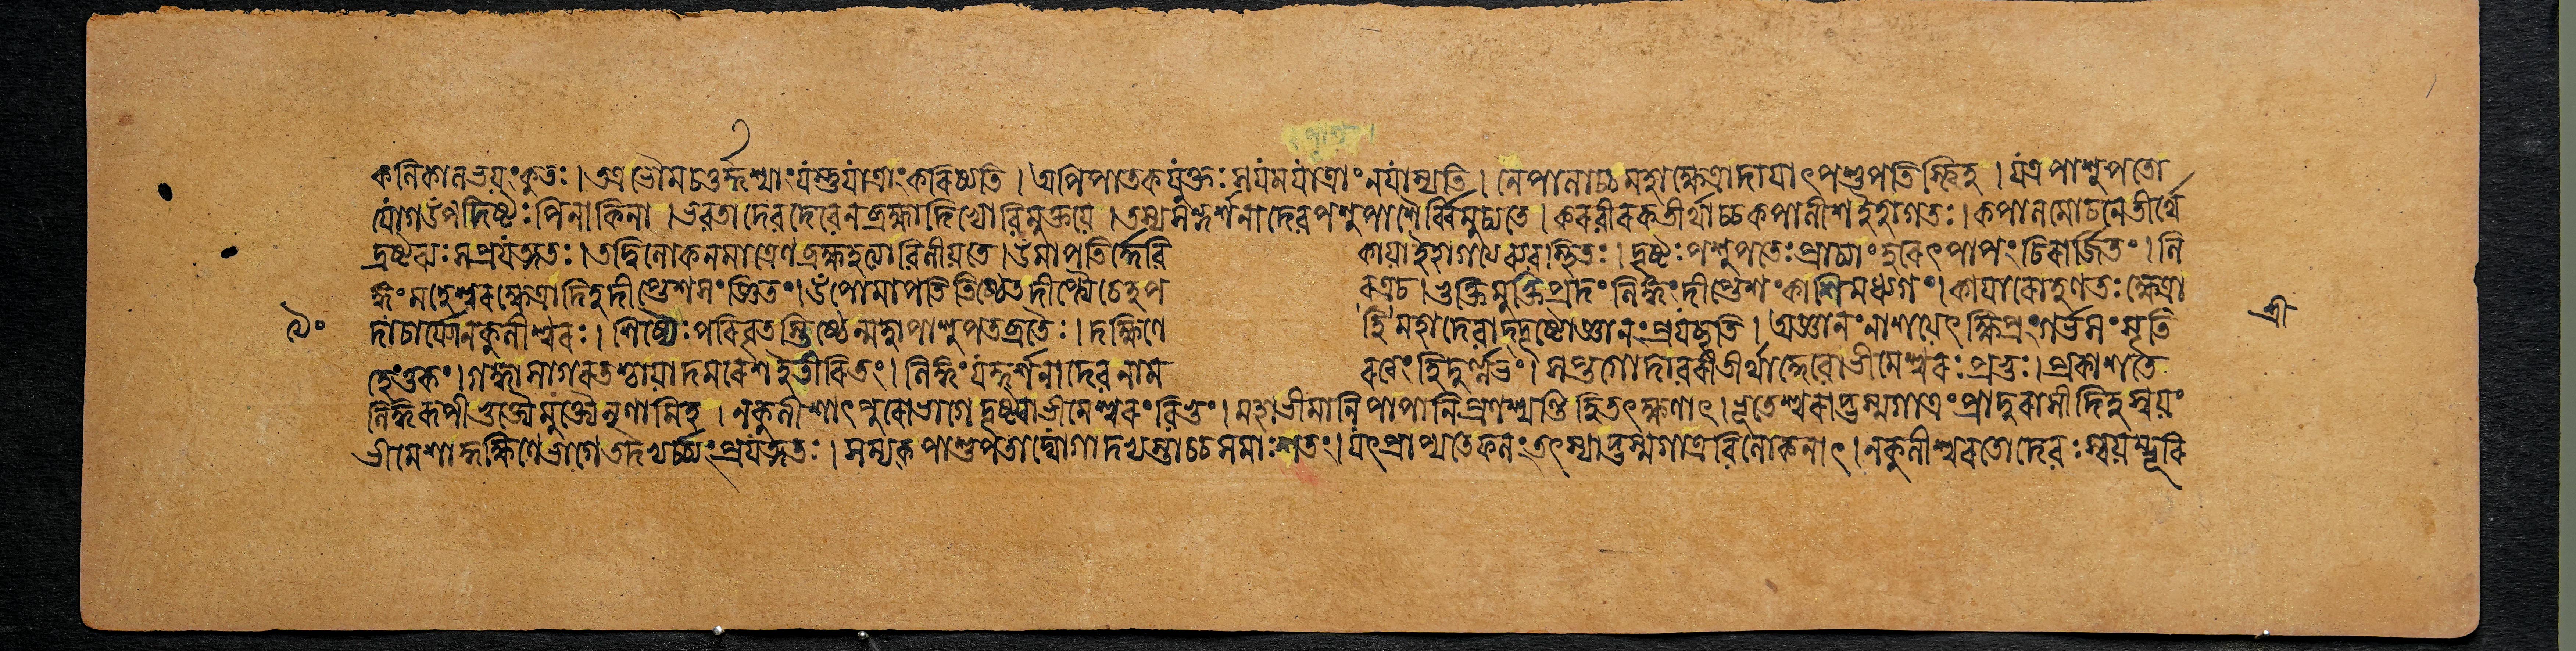 কলিকালভয়ং কুতঃ । তত্র ভৌমচতুর্দ্দশ্যাং যস্তু যাত্রাং করিষ্যতি । অপি পাতকযুক্তঃ স যমযাত্রাং ন যাস্যতি । নেপালাচ্চ মহাক্ষেত্রাদায়াৎ পশুপতিস্ত্বিহ । যত্র পাশুপতো
যোগ উপদিষ্টঃ পিনাকিনা । ভবতা দেবদেবেন ব্রহ্মাদিভ্যো বিমুক্তয়ে । তস্য সন্দর্শনাদেব পশুপাশৈর্ব্বিমুচ্যতে । করবীরকতীর্থাচ্চ কপালীশ ইহাগতঃ । কপালমোচনে তীর্থে
দ্রষ্টব্যঃ স প্রযত্নতঃ । তদ্বিলোকনমাত্রেণ ব্রহ্মহত্যা বিলীয়তে । উমাপতির্দ্দেবি কায়া ইহাগত্য চিরং স্থিতঃ । দৃষ্টঃ পশুপতেঃ প্রাচ্যাং হরেৎ পাপং চিরার্জ্জিতং । লি
ঙ্গং মহেশ্বরক্ষেত্রাদিহ দীপ্তেশসংজ্ঞিতং । উপোমাপতি তিষ্ঠেত দীপ্ত্যৈ চেহ প রত্র চ । ভুক্তিমুক্তিপ্রদং লিঙ্গং দীপ্তেশং কাশিমধ্যগং । কায়ারোহণতঃ ক্ষেত্রা
দাচার্য্যো নকুলীশ্বরঃ । শিষ্যৈঃ পরিবৃতস্তিষ্ঠেন্মহাপাশুপতব্রতৈঃ । দক্ষিণে হি মহাদেবাদ্দৃষ্টো জ্ঞানং প্রযচ্ছতি । অজ্ঞানং নাশয়েৎ ক্ষিপ্রং গর্ভসংসৃতি
হেতুকং । গঙ্গাসাগরতশ্চায়াদমরেশ ইতীরিতং । লিঙ্গং যদ্দর্শনাদেব নাম রত্বং হি দুর্ল্লভং । সপ্তগোদাবরীতীর্থাদ্দেবো ভীমেশ্বরঃ প্রভুঃ । প্রকাশতে
লিঙ্গরূপী ভুক্ত্যৈ মুক্ত্যৈ নৃণামিহ । নকুলীশাৎ পুরোভাগে দৃষ্ট্বা ভীমেশ্বরং বিভুং । মহাভীমানি পাপানি প্রণশ্যন্তি হি তৎক্ষণাৎ । ভূতেশ্বরাদ্ভস্মগাত্রং প্রাদুরাসীদিহ স্বয়ং
ভীমেশাদ্দক্ষিণে ভাগে তদভ্যর্চ্চ্যং প্রযত্নতঃ । সম্যক্ পাশুপতাদ্যোগাদভ্যস্তাচ্চ সমাঃ শতং । যৎ প্রাপ্যতে ফলং তৎ স্যাদ্ভস্মগাত্রবিলোকনাৎ । নকুলীশ্বরতো দেবঃ স্বয়ম্ভূরি